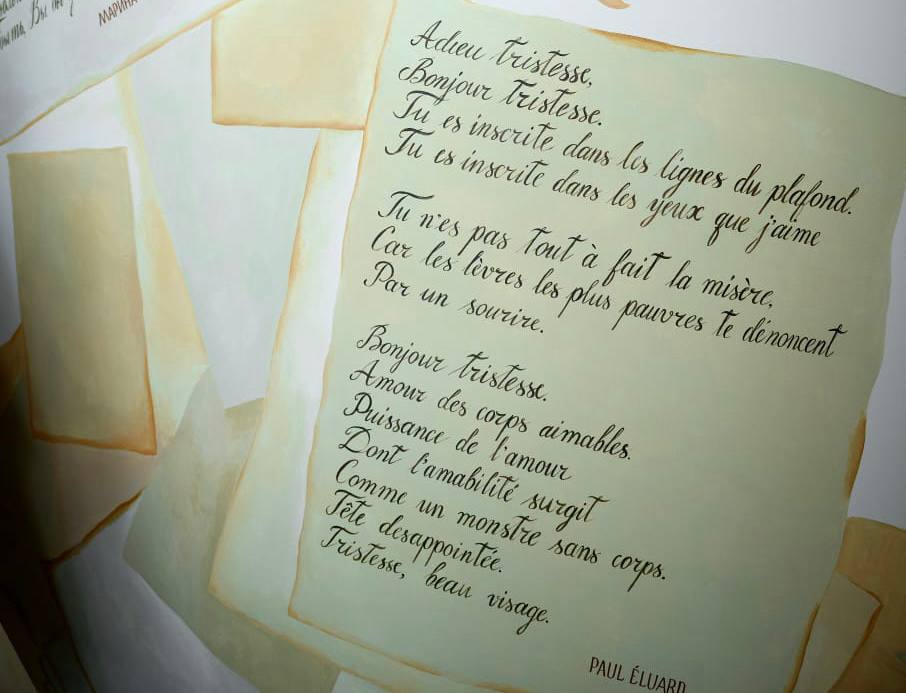 МАРИНА
Adieu tristesse,
Bonjour tristesse.
Tu es inscrite dans les lignes du plafond.
Tu es inscrite dans les yeux que j'aime
Tu n'es pas tout à fait la misère,
Car les lèvres les plus pauvres te dénoncent
Par un sourire.
Bonjour tristesse.
Amour des corps aimables.
Puissance de l'amour
Dont l'amabilité surgit
Comme un monstre sans corps.
Tête desappointée.
Tristesse, beau visage.
PAUL ÉLUARD